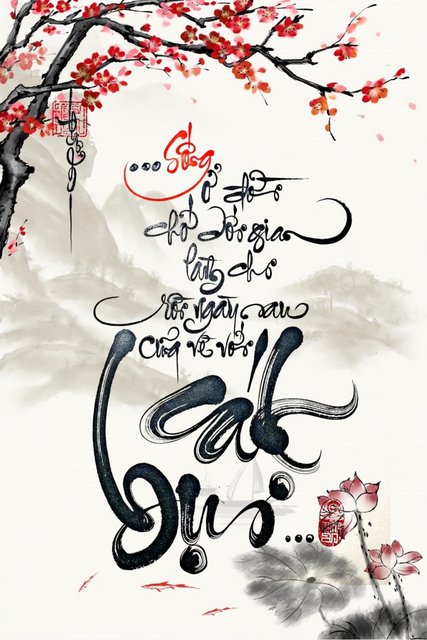 ... Sống
ở đời
chớ dối gian
rồi ngày sau
cũng về với
cát
bụi ...